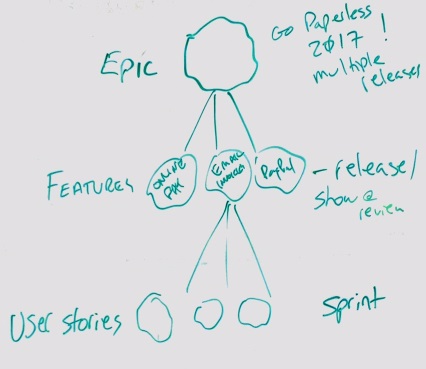 Epic
Go Paperless
2017!
multiple
releases
Features
Online
Pay
Email
Invoices
PayPal
- release/
show @
review
User stories
Sprint